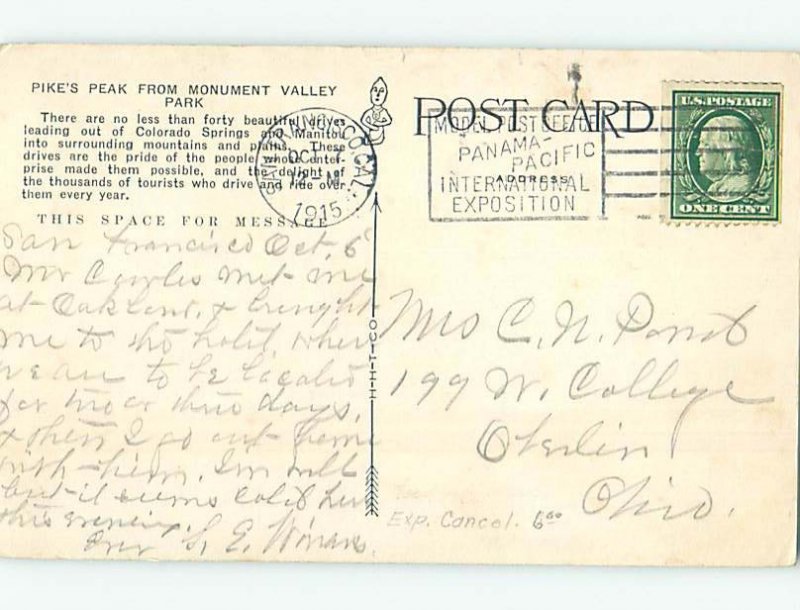 PIKE'S PEAK FROM MONUMENT VALLEY
PARK
There are no less than forty beautiful drives
leading out of Colorado Springs and Manitou
into surrounding mountains and plains. These
drives are the pride of the people whose enter-
prise made them possible, and the delight of
the thousands of tourists who drive and ride over
them every year.
THIS SPACE FOR MESSAGE
San Francisco Oct. 6
Mr Cowles met me
at Oakland, & brought
me to the hotel, where
we are to be located
for two or three days,
& then I go out home
with them. I'm well
but it seems cold here
this evening.
S. E. Winans
H-H-T-CO
POST CARD
ADDRESS
CAL.
OCT
1915
MODEL POST OFFICE
PANAMA-
PACIFIC
INTERNATIONAL
EXPOSITION
U.S. POSTAGE
ONE CENT
Mrs C. N. Pond
199 W. College
Oberlin
Ohio.
Exp. Cancel. 6.00